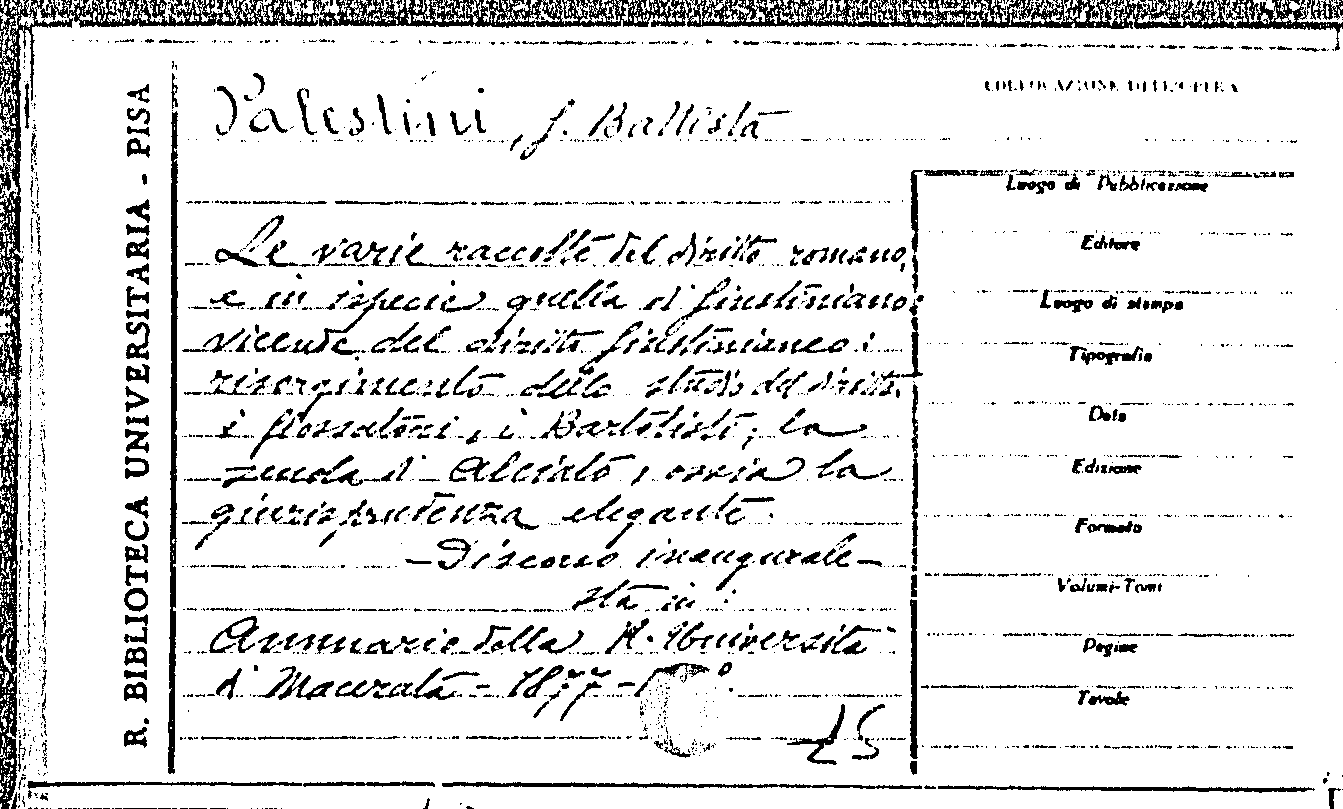 R. BIBLIOTECA UNIVERSITARIA - PISA
Palestini, G. Battista
COLLOCAZIONE DELL'OPERA
Le varie raccolte del diritto romano,
e in ispecie quella di Giustiniano:
vicende del diritto Giustinianeo:
risorgimento dello studio del diritto.
i glossatori, i Bartolisti, la
scuola di Alciato, ossia la
giurisprudenza elegante.
—Discorso inaugurale—
sta in:
Annuario della R. Università
di Macerata - 1877-
Luogo di Pubblicazione
Editore
Luogo di stampa
Tipografia
Data
Edizione
Formato
Volumi-Tomi
Pagine
Tavole